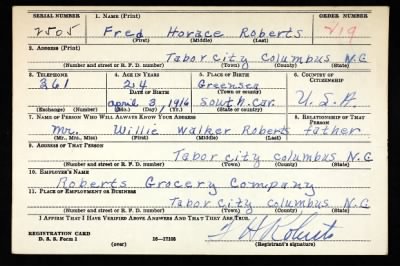 SERIAL NUMBER 1. NAME (Print) ORDER NUMBER
2505 Fred Horace Roberts V19
(First) (Middle) (Last)
2. ADDRESS (Print)
Tabor city Columbus N.C
(Number and street or R. F. D. number) (Town) (County) (State)
3. TELEPHONE 4. AGE IN YEARS 5. PLACE OF BIRTH 6. COUNTRY OF CITIZENSHIP
261 24 Greensea
DATE OF BIRTH (Town or county)
april 3, 1916 South. Car. U.S.A.
(Exchange) (Number) (Mo.) (Day) (Yr.) (State or country)
7. NAME OF PERSON WHO WILL ALWAYS KNOW YOUR ADDRESS 8. RELATIONSHIP OF THAT PERSON
Mr. Willie Walker Roberts father
(Mr., Mrs., Miss) (First) (Middle) (Last)
9. ADDRESS OF THAT PERSON
Tabor city columbus N.C
(Number and street or R. F. D. number) (Town) (County) (State)
10. EMPLOYER'S NAME
Roberts Grocery Company
11. PLACE OF EMPLOYMENT OR BUSINESS
Tabor city columbus N.C
(Number and street or R. F. D. number) (Town) (County) (State)
I AFFIRM THAT I HAVE VERIFIED ABOVE ANSWERS AND THAT THEY ARE TRUE.
REGISTRATION CARD
D. S. S. Form 1 (over) 16—17105 F H Roberts
(Registrant's signature)